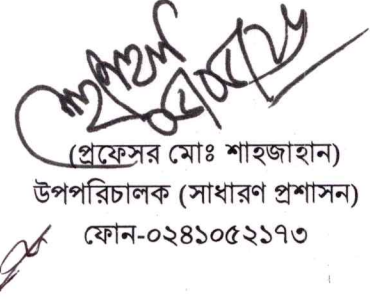 (প্রফেসর মোঃ শাহজাহান)
উপপরিচালক (সাধারণ প্রশাসন)
ফোন-০২৪১০৫২১৭৩